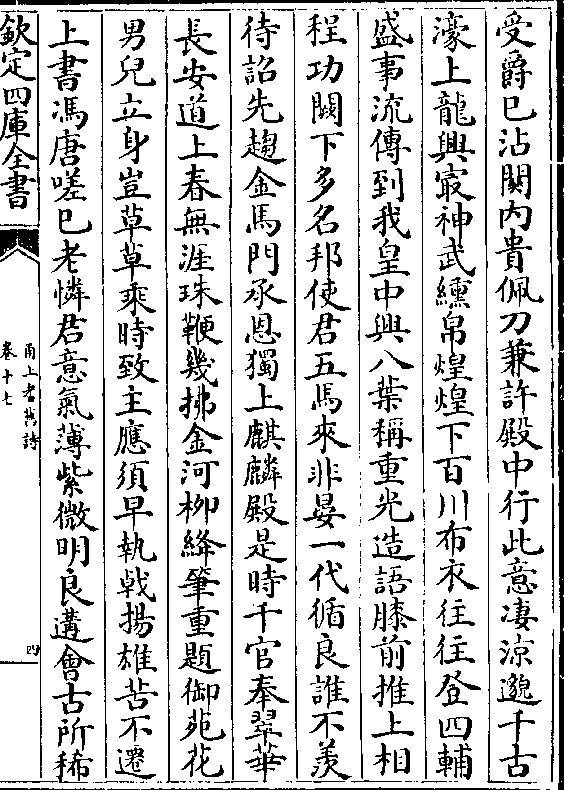 受爵已沾闗内貴佩刀兼許殿中行此意凄涼邈千古
濠上龍興㝡神武纁帛煌煌下百川布衣往往登四輔
盛事流傳到我皇中興八葉稱重光造語膝前推上相
程功闕下多名邦使君五馬來非晏一代循良誰不羨
待詔先趨金馬門承恩獨上麒麟殿是時千官奉翠華
長安道上春無涯珠鞭幾拂金河柳絳筆重題御苑花
男兒立身豈草草乘時致主應須早執㦸揚雄苦不遷
上書馮唐嗟已老憐君意氣薄紫微明良遘會古所稀
欽定四庫全書
甬上耆舊詩
卷十七
四